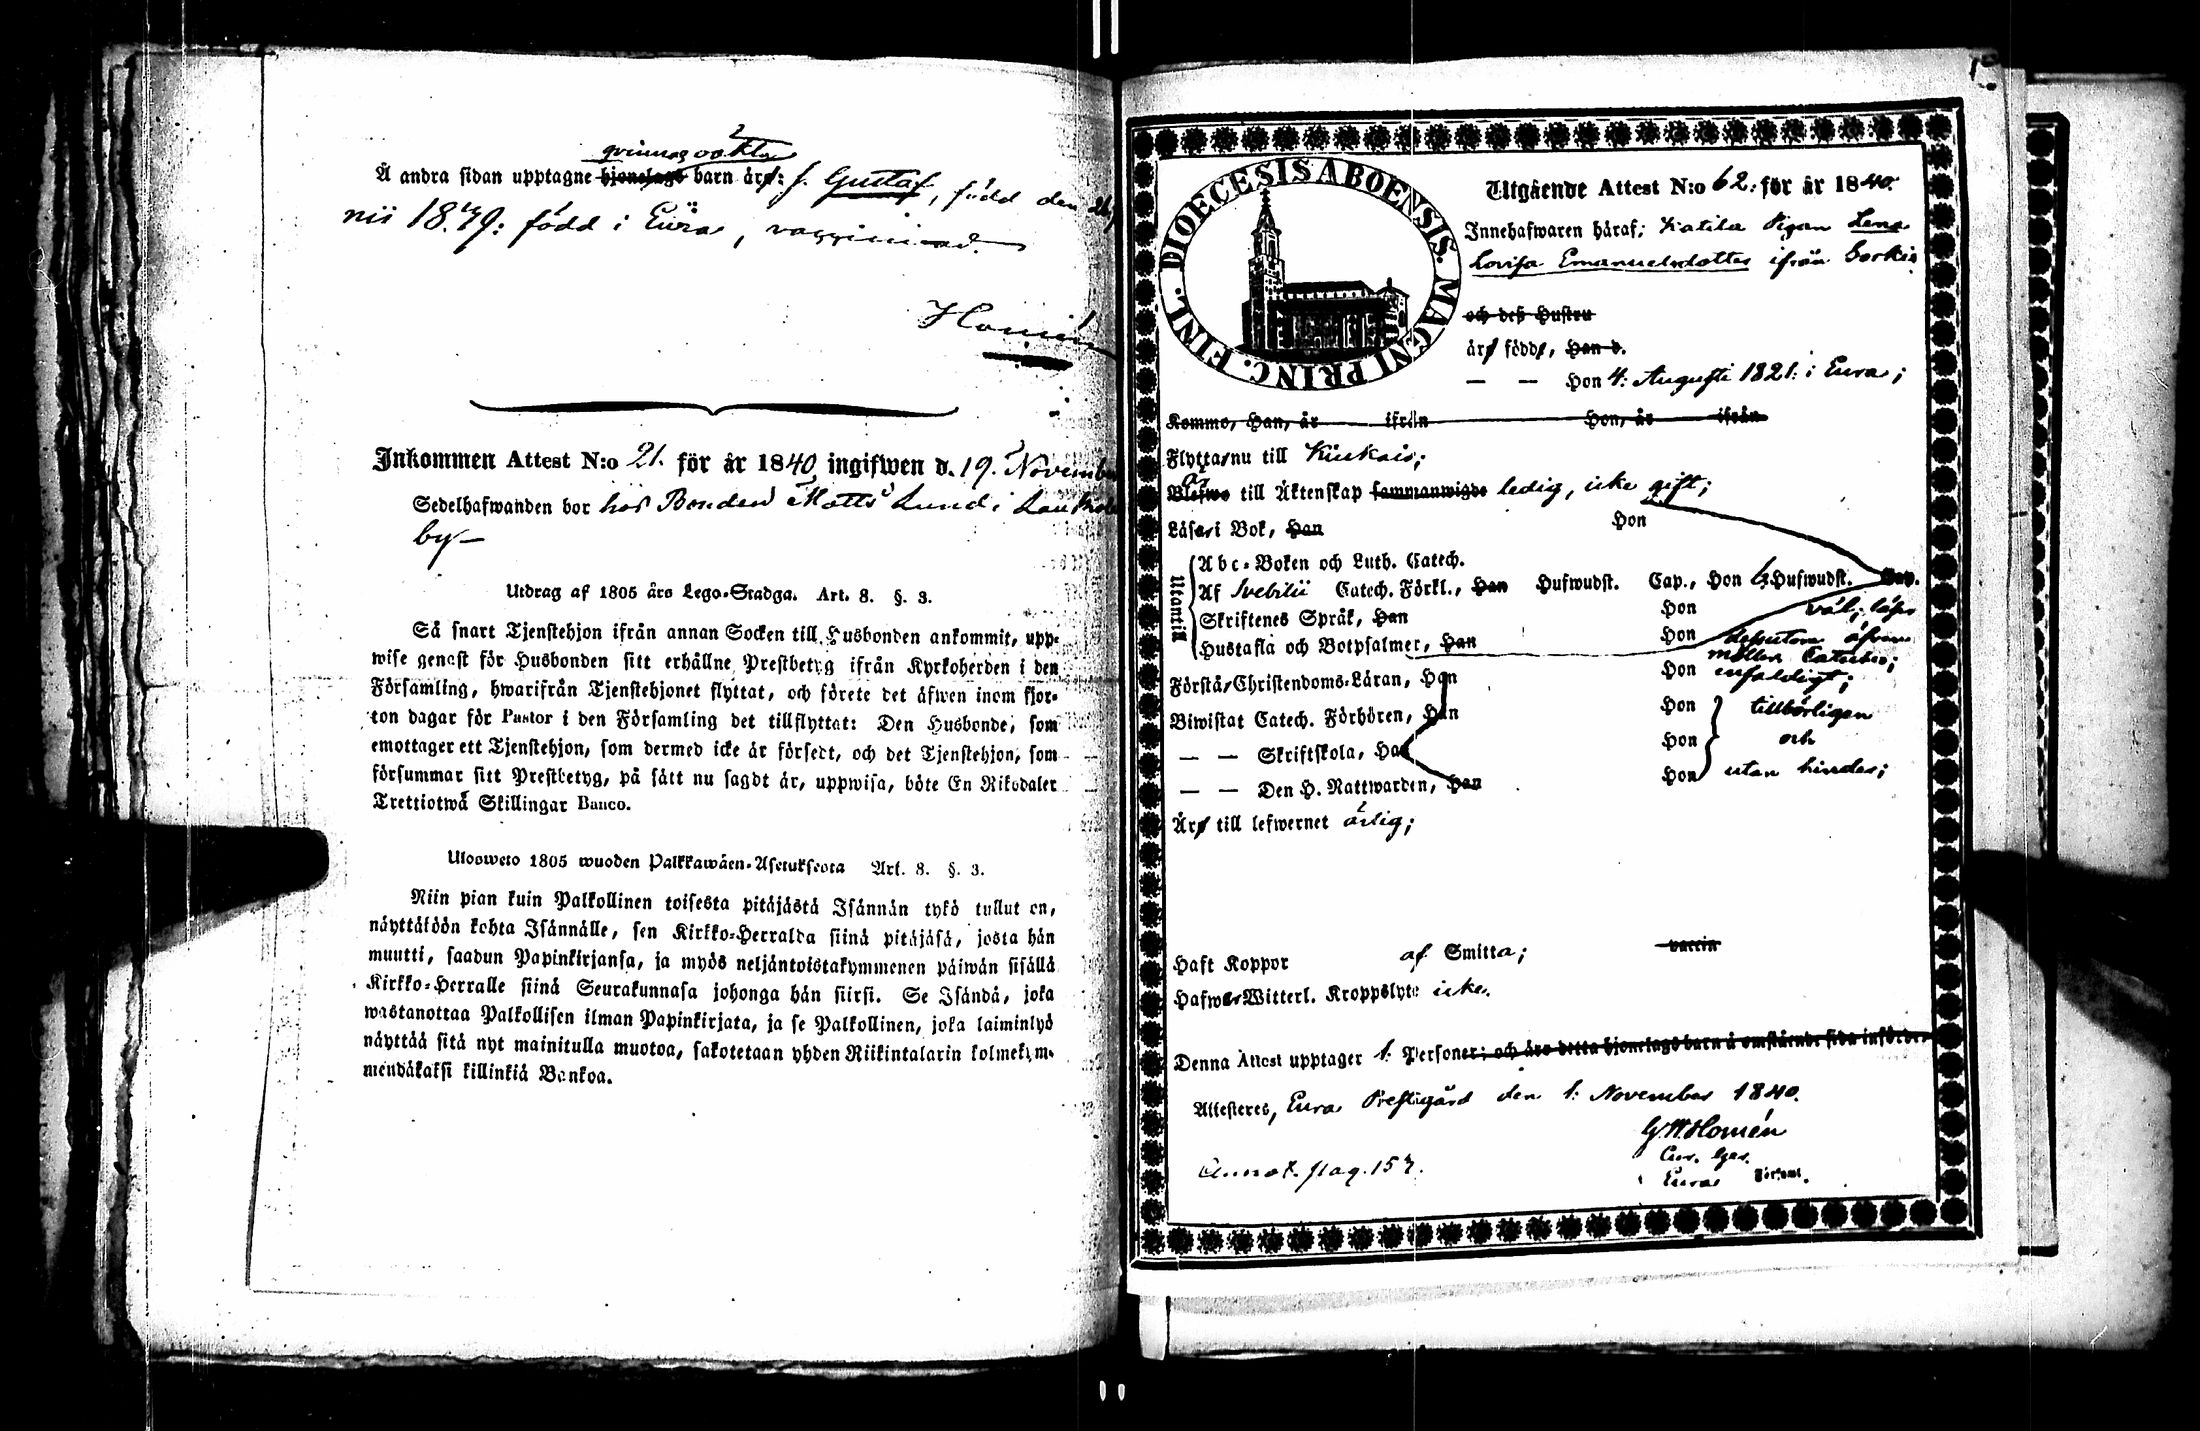 Å andra sidan upptagne hjonelags barn äro: s. Gustaf, född den
nii 1839: född i Eura, vaccinerad.
Homén
Inkommen Attest N:o 21. för år 1840 ingifwen d. 19. November
Sedelhafwanden bor hos Bonden Matts Lund i
by
Utdrag af 1805 års Lego-Stadga. Art. 8. §. 3.
Så snart Tjenstehjon ifrån annan Socken till Husbonden ankommit, upp-
wise genast för Husbonden sitt erhållne Prestbetyg ifrån Kyrkoherden i den
Församling, hwarifrån Tjenstehjonet flyttat, och förete det äfwen inom fjor-
ton dagar för Pastor i den Församling det tillflyttat: Den Husbonde, som
emottager ett Tjenstehjon, som dermed icke är försedt, och det Tjenstehjon, som
försummar sitt Prestbetyg, på sätt nu sagdt är, uppwisa, böte En Riksdaler
Trettiotwå Skillingar Banco.
Ulosweto 1805 wuoden Palkkawäen-Asetuksesta Art. 8. §. 3.
Niin pian kuin Palkollinen toisesta pitäjästä Isännän tykö tullut on,
näyttäköön kohta Isännälle, sen Kirkko-Herralda siinä pitäjäsä, josta hän
muutti, saadun Papinkirjansa, ja myös neljäntoistakymmenen päiwän sisällä
Kirkko-Herralle siinä Seurakunnasa johonga hän siirsi. Se Isändä, joka
wastanottaa Palkollisen ilman Papinkirjata, ja se Palkollinen, joka laiminlyö
näyttää sitä nyt mainitulla muotoa, sakotetaan yhden Riikintalarin kolmekym-
mendäkaksi killinkiä Bankoa.
DIOECESIS ABOENSIS. MAGNI PRINC. FINL.
Utgående Attest N:o 62. för år 1840.
Innehafwaren häraf; Pigan Lena
Lovisa Emanuelsdotter ifrån Sorkis
och dess Hustru
äro födde, Han d.
— — Hon 4: Augusti 1821: i Eura;
Komme, Han, år ifrån Hon, år ifrån
Flytta nu till Kiukais;
är
Blefwo till Äktenskap sammanwigde ledig, icke gift;
Läsa i Bok, Han Hon
Utantill
Abc-Boken och Luth. Catech.
Af Svebilii Catech. Förkl., Han Hufwudst. Cap., Hon Hufwudst. Cap.
Skriftenes Språk, Han Hon väl; läser
Hustafla och Botpsalmer, Han Hon dessutom
Förstå Christendoms-Läran, Han Hon enfaldigt;
Biwistat Catech. Förhören, Han Hon tillbörligen
— — Skriftskola, Han Hon och
— — Den H. Nattwarden, Han Hon utan hinder;
Äro till lefwernet ärlig;
Haft Koppor af Smitta; vaccin
Hafwa Witterl. Kroppslyte icke.
Denna Attest upptager 1. Personer; och äro detta hjonelags barn å omstående sida införde.
Attesteres, Eura Prestgård den 1: November 1840.
G W Homén
Annot. pag. 157.
Eura Församl.